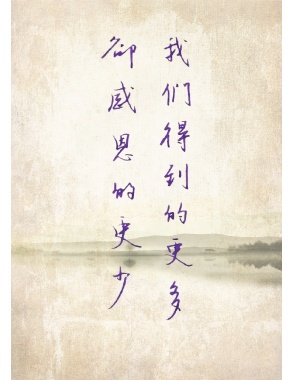 我们得到的更多
却感恩的更少